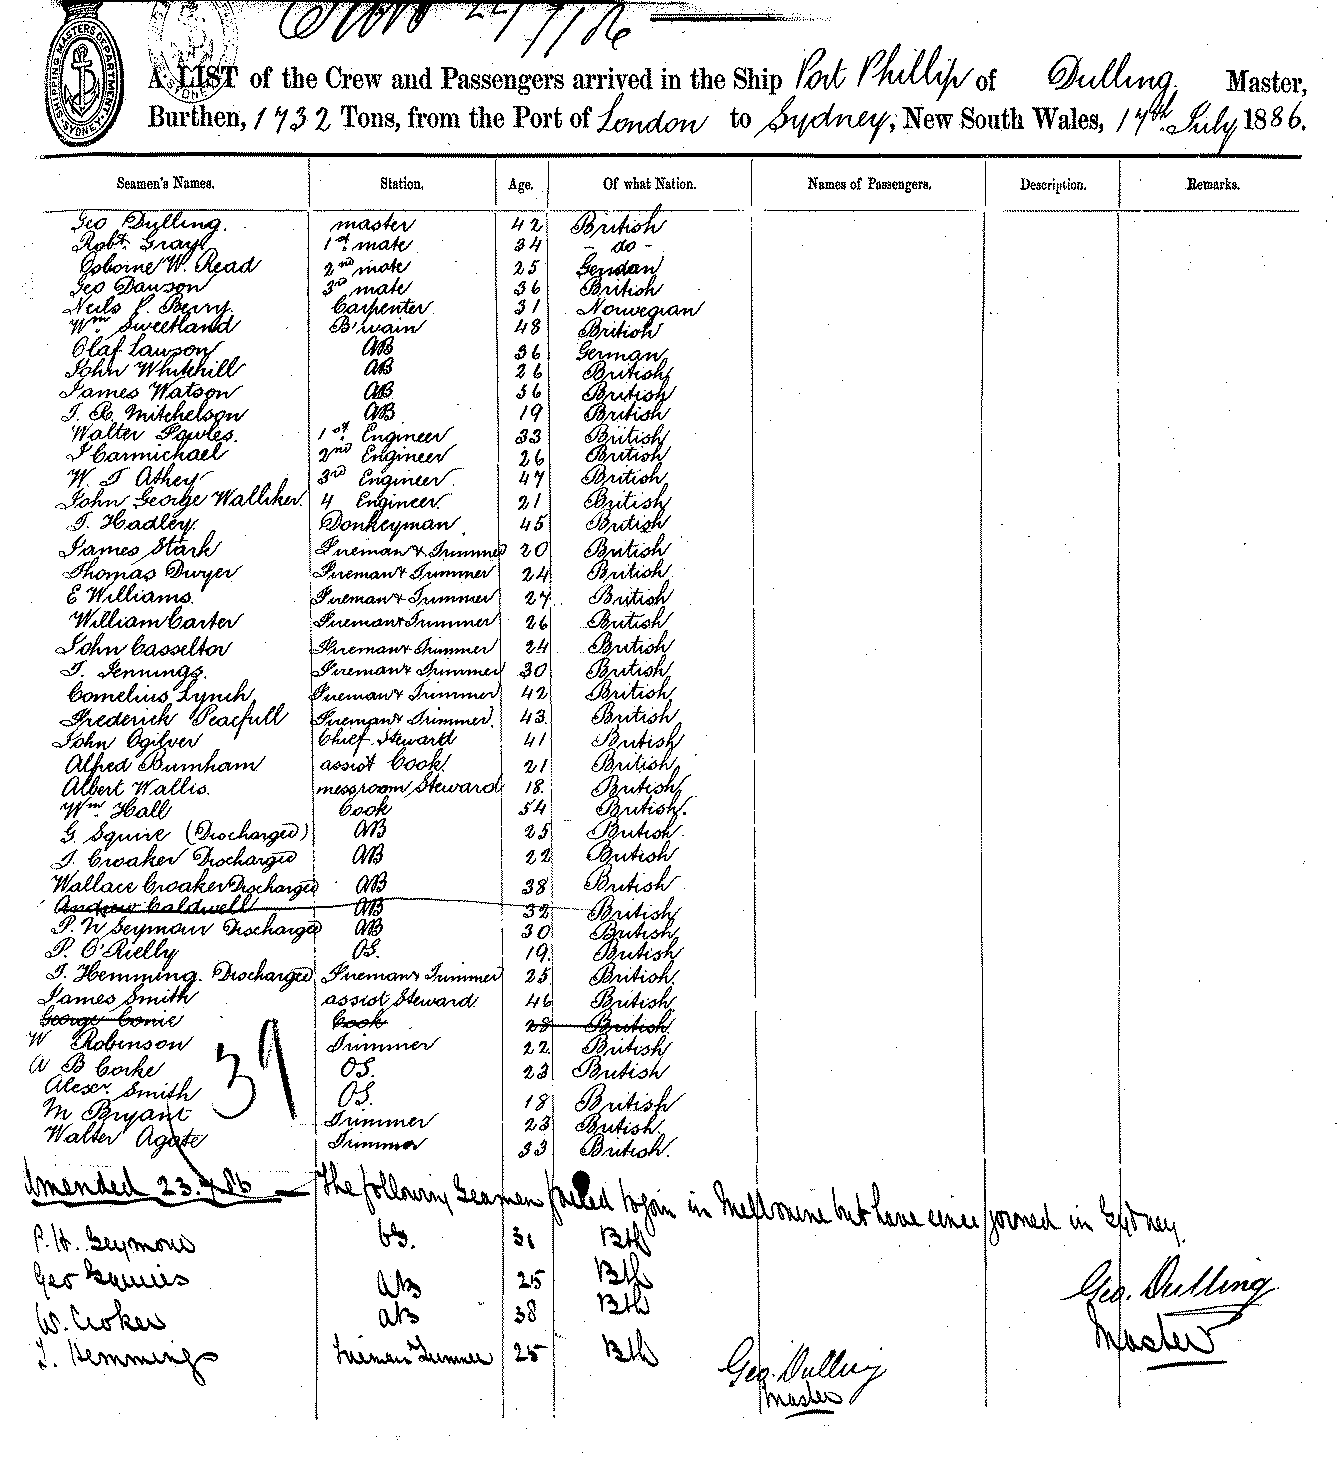 22/7/86
SHIPPING MASTERS DEPARTMENT SYDNEY
A LIST of the Crew and Passengers arrived in the Ship Port Phillip of Dulling, Master,
Burthen, 1732 Tons, from the Port of London to Sydney, New South Wales, 17th July 1886.
Seamen's Names. Station. Age. Of what Nation. Names of Passengers. Description. Remarks.
Geo Dulling. master 42 British
Robt. Gray 1st mate 34 - do -
Osborne W. Read 2nd mate 25
Geo Dawson 3rd mate 36 British
Neils P. Berry. Carpenter 31 Norwegian
Wm Sweetland B'wain 48 British
Olaf Lawson AB 36 German
John Whitehill AB 26 British
James Watson AB 36 British
T. R. Mitchelson AB 19 British
Walter Fowles. 1st Engineer 33 British
J Carmichael 2nd Engineer 26 British
W. T Athey 3rd Engineer 47 British
John George Walliker. 4 Engineer. 21 British
T. Hadley. Donkeyman. 45 British
James Stark Fireman & Trimmer 20 British
Thomas Dwyer Fireman & Trimmer 24 British
E Williams. Fireman & Trimmer 27 British
William Carter Fireman & Trimmer 26 British
John Casselton Fireman & Trimmer 24 British
T. Jennings. Fireman & Trimmer 30 British
Cornelius Lynch Fireman & Trimmer 42 British
Frederick Peacfull Fireman & Trimmer 43 British
John Ogilver Chief Steward 41 British
Alfred Burnham assist Cook 21 British
Albert Wallis. messroom Steward 18. British
Wm Hall Cook 54 British.
G. Squire (Discharged) AB 25 British.
T. Croaker Discharged AB 22 British
Wallace Croaker Discharged AB 38 British
Andrew Caldwell AB 32 British
P. W Seymour Discharged AB 30 British
P. O'Rielly OS. 19. British
T. Hemming. Discharged Fireman & Trimmer 25 British
James Smith assist Steward 46 British
George Conie Cook 28 British
W Robinson Trimmer 22 British
A B Corke OS. 23 British
Alexr. Smith OS. 18 British
M Bryant Trimmer 23 British
Walter Agate Trimmer 33 British.
39
Amended 23.7.86 — The following Seamen failed to join in Melbourne but have since joined in Sydney.
P. H. Seymour OS. 31 Btsh
Geo Squires AB 25 Btsh
W. Croker AB 38 Btsh
T. Hemmings Fireman Trimmer 25 Btsh
Geo. Dulling
Master
Geo. Dulling
Master